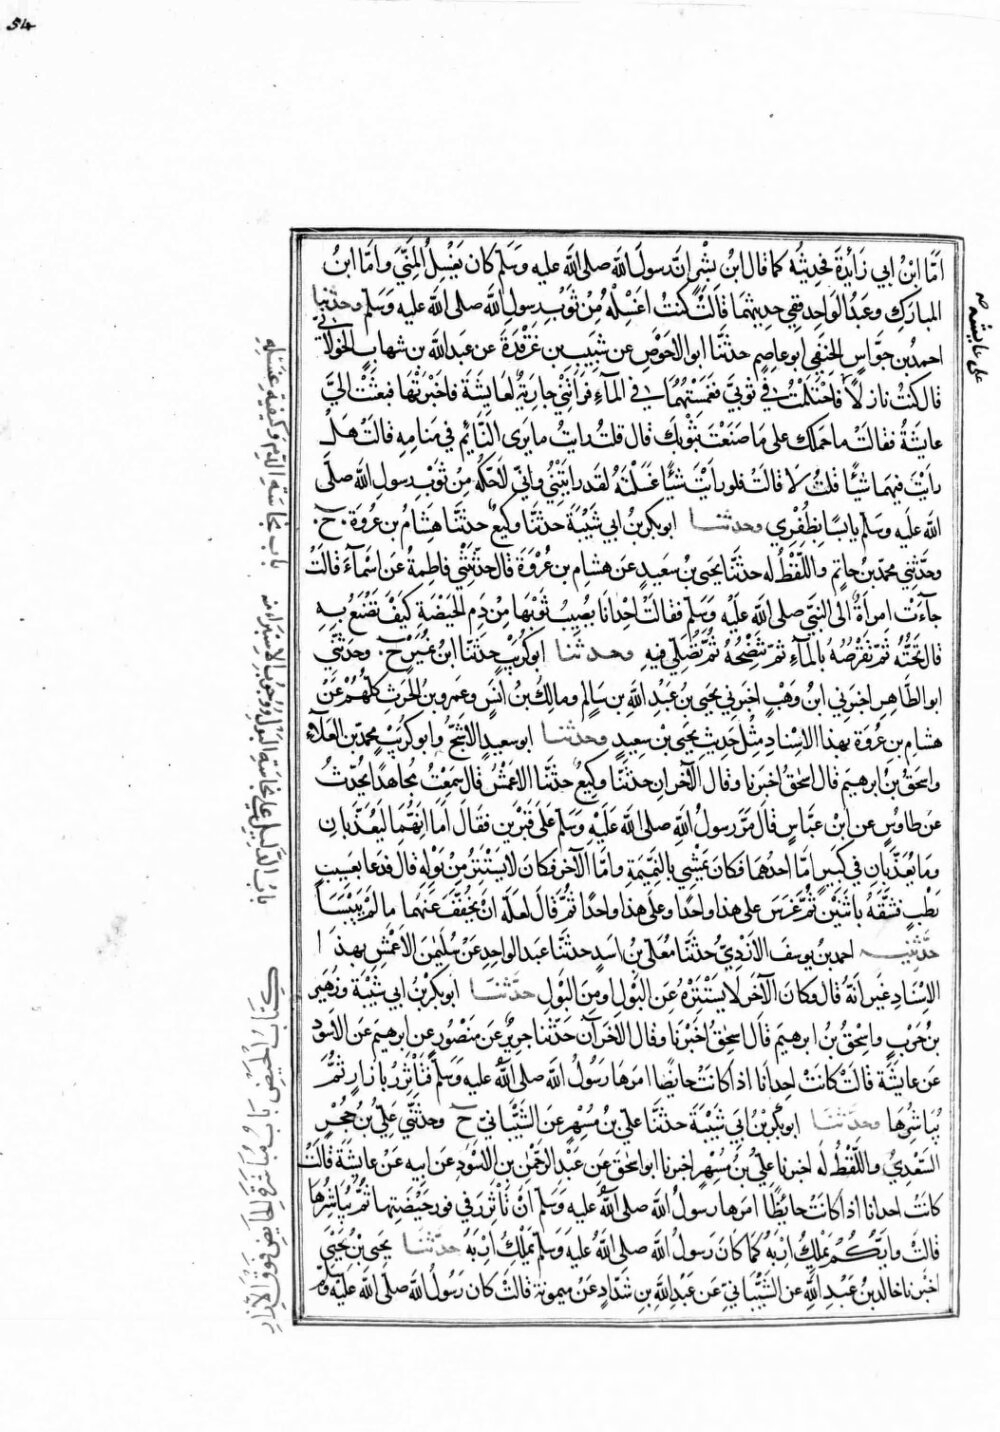 54
امّا ابْنُ ابي زَائِدَةَ فحديثُه كما قال ابنُ بِشْرٍ انّ رسولَ الله صلى الله عليه وسَلم كان يَغْسِلُ المَنيَّ وامّا ابنُ
المبارَكِ وعَبْدُ الوَاحِدِ ففي حديثهما قَالتْ كنتُ اغسِلُه مِنْ ثوبِ رسولِ الله صلى الله عليه وسَلم وحدثنا
احمدُ بن جَوّاسٍ الحنفي ابو عاصِمٍ حدثنَا ابو الاحْوَصِ عن شَبِيبِ بن غَرْقَدَةَ عن عبد الله بن شهابٍ الخَولاني
قال كنتُ نازلًا على عايشة فاحْتلمْتُ في ثوبيَّ فغمَسْتُهُمَا في المآءِ فرأتْنِي جاريَةٌ لعايشَةَ فاخبَرَتْهَا فبعَثَتْ اليَّ
عايشَةُ فقالتْ ما حَمَلَكَ على مَا صَنَعْتَ بثوبَيْكَ قال قلتُ رايتُ ما يَرَى النّايمُ في منامِهِ قالتْ هَلْ
رايْتَ فيهمَا شيًا قلتُ لَا قالتْ فلو رايْتَ شيًا غسَلْتَهُ لقد رايتُني واني لَاحُكّهُ مِن ثوبِ رسولِ الله صلى
الله عليه وسَلم يابسًا بظُفُري وحدثنا ابو بكر بنُ ابي شَيْبَةَ حدثنَا وكيعٌ حدثنَا هِشامُ بن عُروةَ ح
وحدّثني محمد بن حاتِمٍ واللّفظُ له حدثنَا يحيى بن سَعيدٍ عن هشامِ بن عُرْوَةَ قال حدّثتْني فاطمةُ عن اسْمآءَ قالتْ
جآءَت امراةٌ الى النبي صلى الله عليه وَسَلم فقالتْ احْدانَا يُصيبُ ثوبَهَا مِنْ دَمِ الحَيْضَةِ كَيْفَ تَصْنَعُ بِهِ
قال تَحُتُّه ثم تَقْرُصُهُ بالمآءِ ثم تَنْضِحُهُ ثم تُصَلّي فيهِ وحدثنا ابو كريْبٍ حدثنَا ابنُ نُمَيْرٍ ح وحدّثني
ابو الطّاهرِ اخبرني ابنُ وَهْبٍ اخبرني يحيى بن عَبدِ اللّهِ بن سَالمٍ ومالكُ بنُ انَسٍ وعمرو بنُ الحرِثِ كلّهُمْ عَنْ
هشامِ بن عُروةَ بهذا الاسْنادِ مِثلَ حَديثِ يحيى بن سعيدٍ وحدثنا ابو سعيدٍ الاشجّ وابو كُرَيْبٍ محمد بن العَلآءِ
واسحقُ بنُ ابرهيمَ قال اسحقُ اخبرنا وقال الآخَرانِ حدثنَا وكيعٌ حدثنَا الاعْمَشُ قال سَمِعْتُ مُجاهدًا يُحَدّثُ
عن طاوسٍ عن ابن عبّاسٍ قال مَرّ رسولُ اللّهِ صلى الله عليْهِ وسَلم على قَبْرَينِ فقال امَا انّهُمَا لَيُعَذّبانِ
ومَا يُعَذّبَانِ في كَبيرٍ امّا احدُهُمَا فكان يَمْشِي بالنّمِيمَةِ وامّا الآخَرُ فكان لا يَسْتَتِرُ مِنْ بَوْلِهِ قال فدَعا بعَسِيبٍ
رَطْبٍ فشَقّهُ باثنَيْنِ ثم غرَسَ على هذا واحدًا وعلى هذا واحدًا ثم قال لعلّه انْ يُخَفّفَ عنهمَا ما لمْ يَيْبَسَا
حدّثنيه احمد بن يوسفَ الازْدِيُّ حدثنَا مُعَلّى بن اسَدٍ حدثنَا عبد الواحدِ عَنْ سُليمٰنَ الاعْمَشِ بهذا
الاسْنادِ غير انّه قال وكان الآخَرُ لا يَسْتَنْزِهُ عن البَوْلِ او مِنَ البَوْلِ حدّثنا ابو بكر بنُ ابي شَيْبَةَ وزُهَيرُ
بنُ حَرْبٍ واسْحقُ بنُ ابرهيمَ قال اسْحقُ اخبَرَنَا وقال الآخَرانِ حَدّثنا جريرٌ عن مَنْصُورٍ عن ابرهيمَ عَن الاسْودِ
عَن عايشَةَ قالتْ كانتْ احْدانَا اذا كانتْ حايضًا امَرَهَا رَسُولُ الله صلى الله عليه وسلم فتَأتزِرُ بازارٍ ثم
يُبَاشِرُهَا وحدّثنا ابو بكر بنُ ابي شيْبَةَ حدثنَا علي بن مُسْهِرٍ عن الشّيْبَاني ح وحدثني عَليُّ بنُ حُجْرٍ
السّعْدِيُّ واللّفْظُ له اخبرنا عليُّ بنُ مُسْهِرٍ اخبرنا ابو اسحق عن عبد الرّحمٰن بن الاسْوَدِ عن ابيه عَنْ عايشَةَ قالتْ
كانتْ احدانا اذا كانتْ حايضًا امَرَها رسولُ الله صلى الله عليه وسَلم انْ تأتزِرَ في فورِ حَيْضَتِها ثم يُبَاشرُهَا
قالتْ وايّكُمْ يَمْلِكُ ارْبَهُ كمَا كان رسُولُ الله صلى الله عليه وسَلم يَمْلِكُ ارْبَهُ حدّثنا يحيى بن يَحْيَى
اخبرنا خالد بن عَبدِ اللّهِ عن الشّيْبَاني عن عَبْدِ اللّهِ بنِ شدّادٍ عنْ ميمونةَ قالتْ كان رَسُولُ الله صلى الله عليه وسلم
على عايشة صح
باب نجاسة الدم وكيفية غسله
باب الدّليل على نجاسة البول ووجوب الاستبراء منه
باب مباشرة الحايض فوق الازار